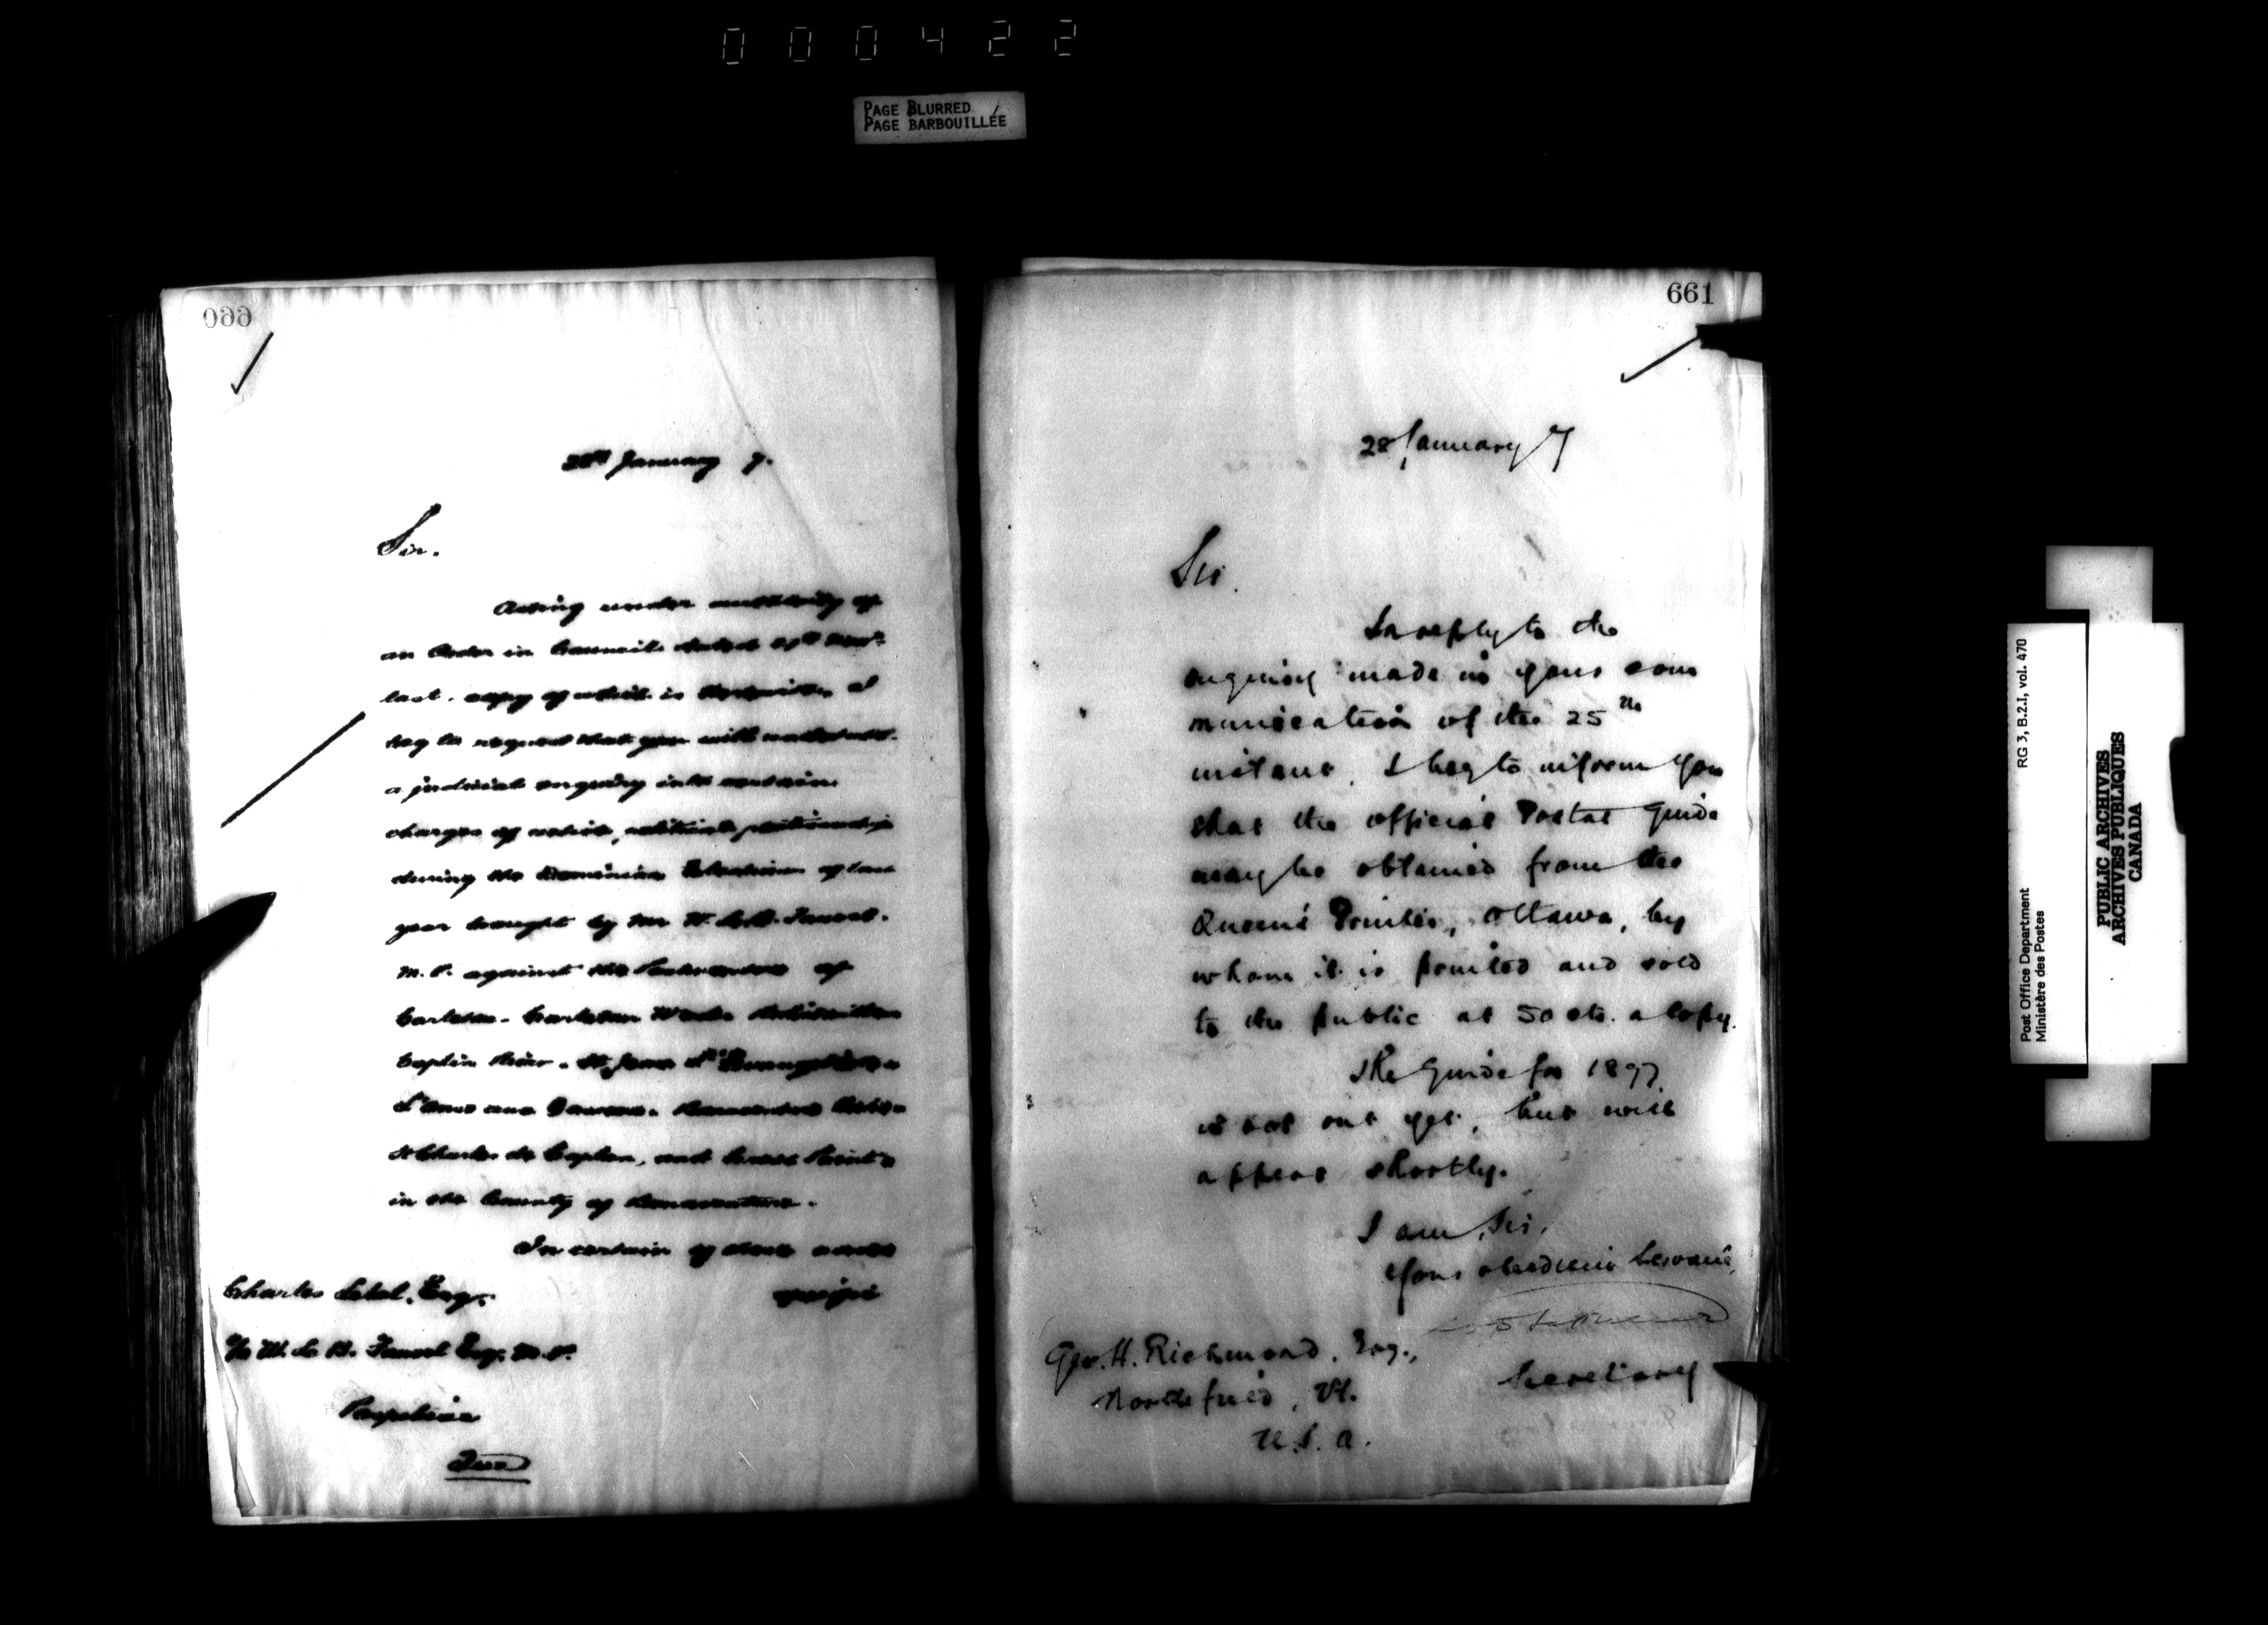 000422
PAGE BLURRED
PAGE BARBOUILLÉE
660
28th January 7.
Sir.
Acting under authority of
an Order in Council dated
last. copy of which is I
beg to request that you will
a judicial enquiry into certain
charges of active, political partizanship
during the Dominion Elections of last
year brought by Mr W. Le B. Fauvel.
M.P. against the Postmasters of
Carleton. Carleton
Caplin River. St Jean L'Evangeliste
L'Anse aux Gascons. Bonaventure
St Charles de Caplan, and
in the County of Bonaventure.
In certain of these cases
Charles Lebel. Esq.
c/o W. Le B. Fauvel Esq. M.P.
Paspebiac
Que
661
28 January 7
Sir.
In reply to the
enquiry made in your com
munication of the 25th
instant. I beg to inform you
that the official Postal Guide
may be obtained from the
Queen's Printer, Ottawa, by
whom it is printed and sold
to the public at 50 cts. a copy.
The Guide for 1897
is not out yet, but will
appear shortly.
I am, Sir,
Your obedient Servant,
Secretary
Geo. H. Richmond. Esq.,
Northfield, Vt.
U.S.A.
Post Office Department RG 3, B.2.I, vol. 470
Ministère des Postes
PUBLIC ARCHIVES
ARCHIVES PUBLIQUES
CANADA